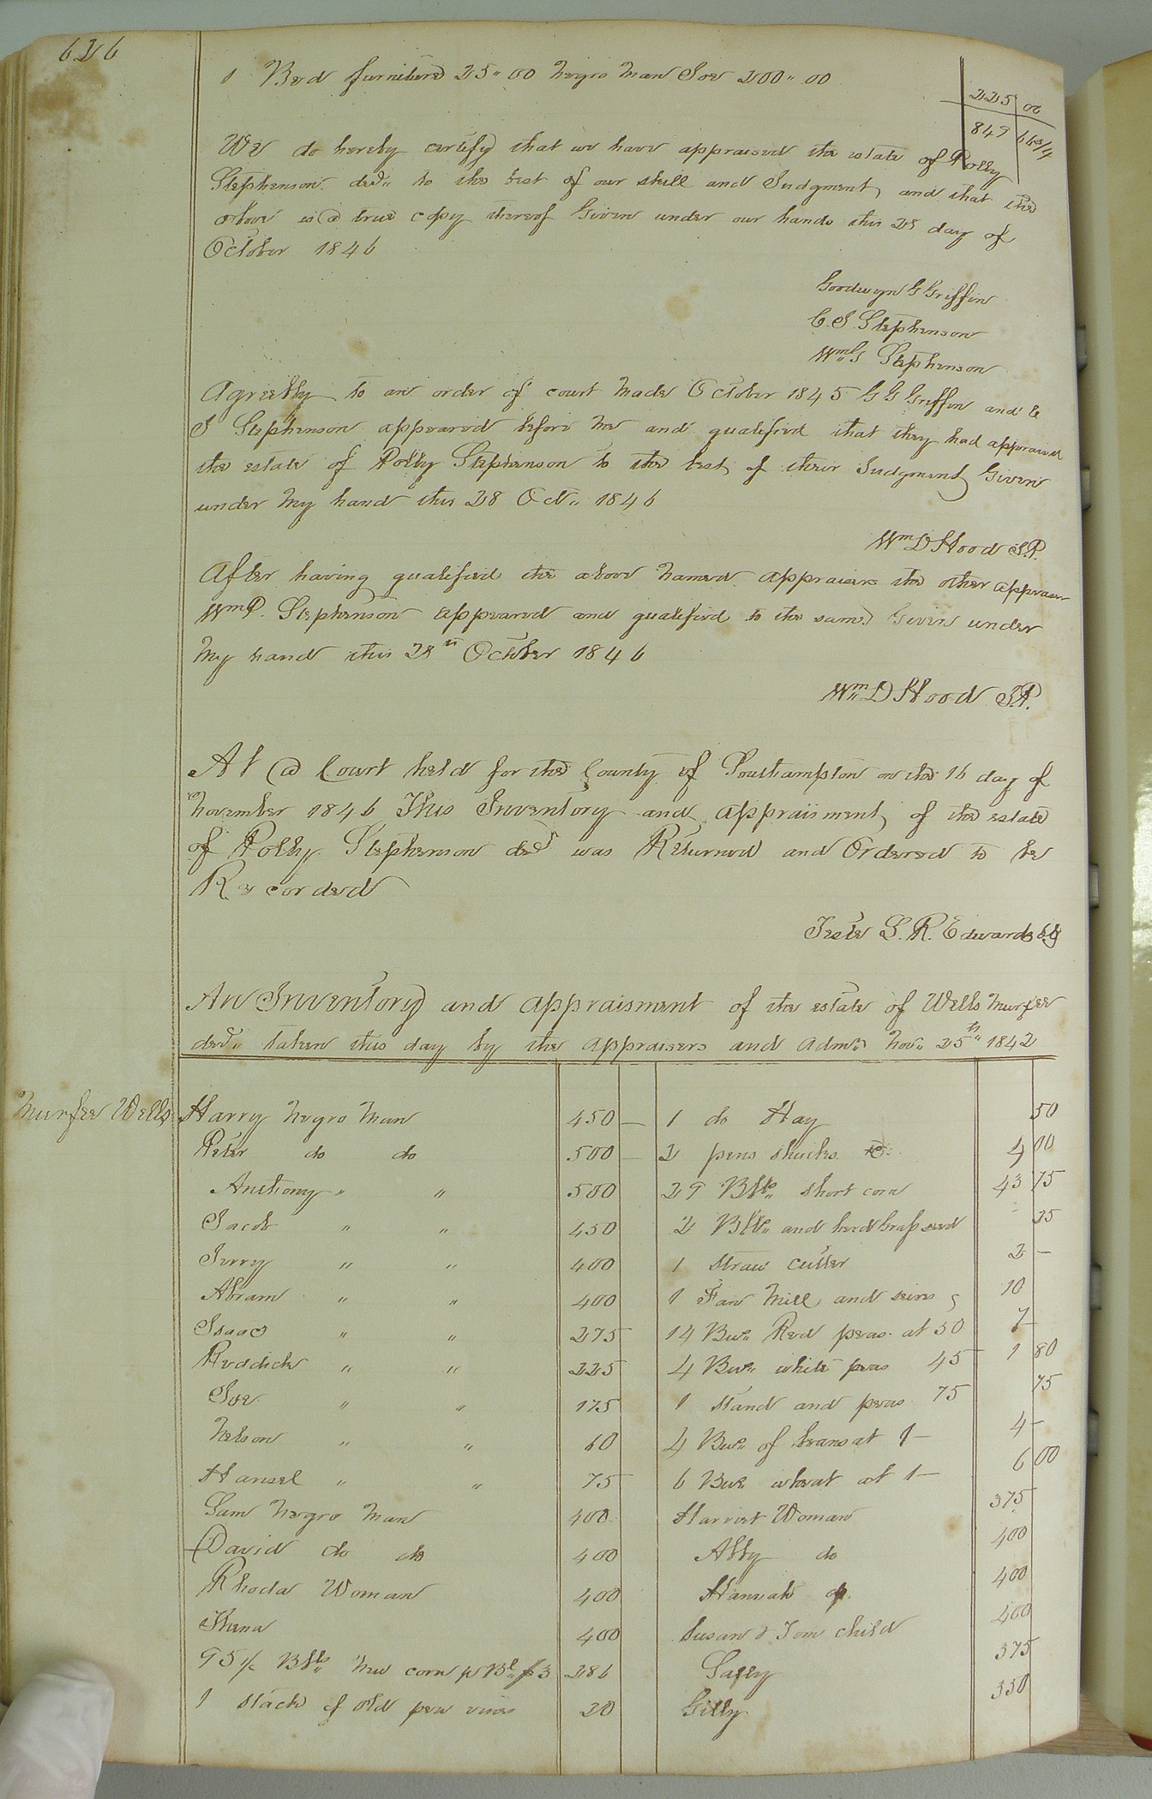 626
1 Bed furniture 25" 00 Negro Man Joe 200" 00
225 00
849 66 3/4
We do hereby certify that we have appraised the estate of Polly
Stephenson decd" to the best of our skill and Judgment, and that the
above is a true copy thereof Given under our hands this 28 day of
October 1846
Goodwyn G Griffin
C. S. Stephenson
Wm Stephenson
Agreebly to an order of court Made October 1845 G G Griffin and C
S Stephenson appeared before me and qualified that they had appraised
the estate of Polly Stephenson to the best of their Judgment Given
under My hand this 28 Oct" 1846
Wm D Hood J.P.
After having qualified the above Named appraisers the other appraiser
Wm P. Stephenson appeared and qualified to the same Given under
My hand this 28th October 1846
Wm D Hood J.P.
At a Court held for the County of Southampton on the 16 day of
November 1846 This Inventory and appraisment, of the estate
of Polly Stephenson decd was Returned and Ordered to be
Recorded
Teste L. R. Edwards Clk
An Inventory and appraisment of the estate of Wells Murfee
decd" taken this day by the appraisers and Adm" Nov" 25th 1842
Murfee Wells
Harry Negro Man 450 — 1 do Hay 50
Peter do do 500 — 2 pens shucks 4 00
Anthony " " 500 29 Bbls" short corn 43 75
Jacob " " 450 2 Bbls" and herd Grass seed 35
Jerry " " 400 1 Straw cutter 2 —
Abram " " 400 1 Fan Mill and 10
Isaac " " 275 14 Bus" Red peas at 50 7
Reddick " " 225 4 Bus" white peas 45 1 80
Joe " " 175 1 stand and peas 75 75
Nelson " " 60 4 Bus" of beans at 1— 4 —
Hansel " " 75 6 Bus wheat at 1— 6 00
Sam Negro Man 400 Harriet Woman 375
David do do 400 Abby do 400
Rhoda Woman 400 Hannah do 400
400 Susan & Tom child 400
95 1/2 Bbls" New corn p Bl" $3 286 Salley 375
1 stack of old pea vines 20 Gilly 350